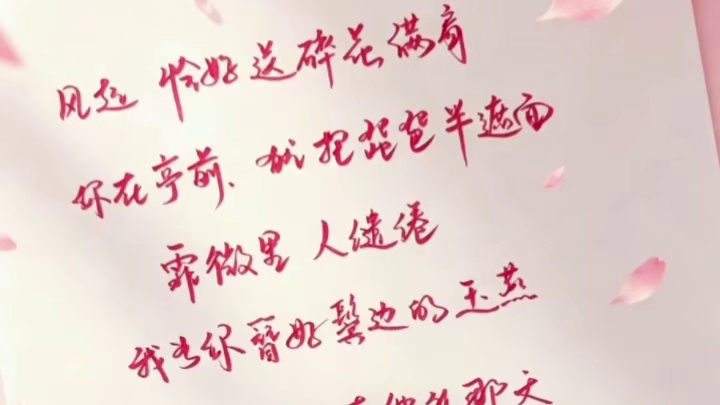 风起 恰好送碎花满肩
你在亭前、犹抱琵琶半遮面
霏微里 人缱绻
我为你簪好鬓边的玉燕
那天